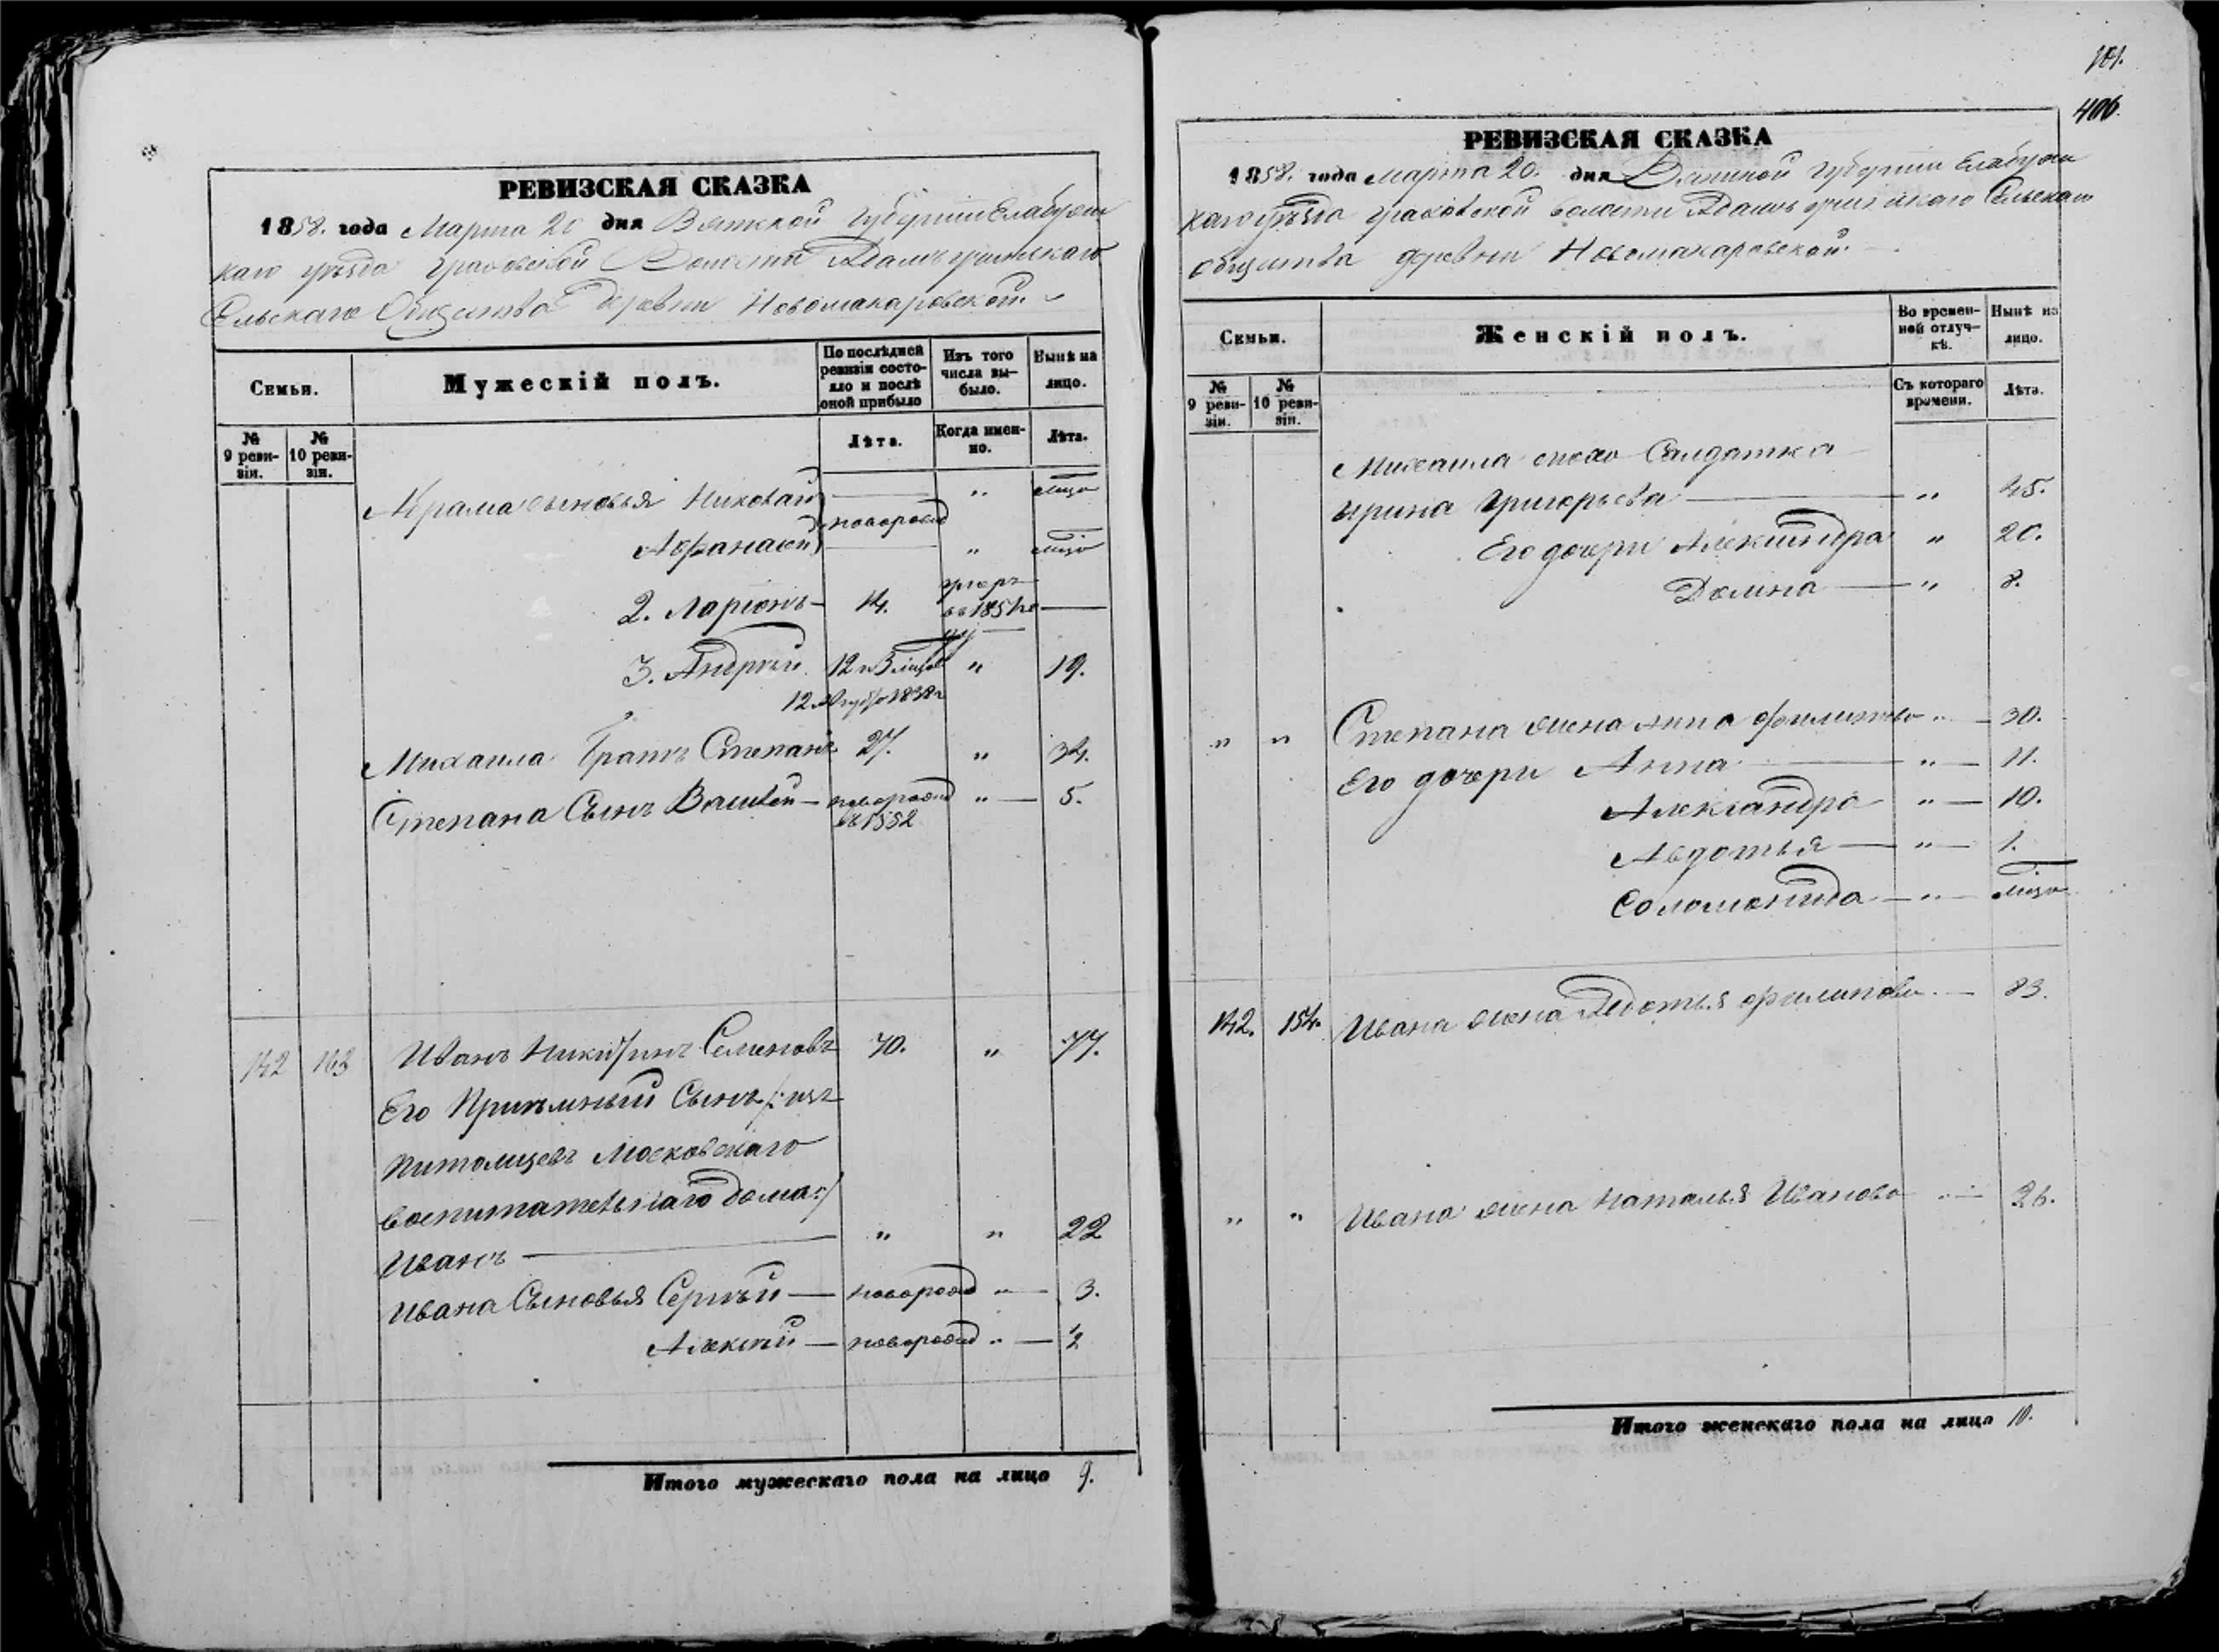 РЕВИЗСКАЯ СКАЗКА
1858. года Марта 20 дня Вятской Губернiи Елабужс
каго уѣзда Граховской Волости
Сельскаго Общества деревни Новомакаровской.
Семьи.
Мужескiй полъ.
По послѣдней ревизiи состояло и послѣ оной прибыло
Изъ того числа выбыло.
Нынѣ на лицо.
№ 9 ревизiи.
№ 10 ревизiи.
Лѣта.
Когда именно.
Лѣта.
сыновья Николай " лицо
новорожд
Афанасiй " лицо
2. Ларiонъ 14. умеръ въ 185
3. Андрей 12 " 19.
12 1838
Михаила братъ Степанъ 27. " 34.
Степана Сынъ Василей новорожд въ 1852 " 5.
142 163 Иванъ Никитинъ Семеновъ 70. " 77.
Его Прiемный Сынъ /: изъ
питомцевъ Московскаго
воспитательнаго дома :/
Иванъ " " 22
Ивана Сыновья Сергѣй новорожд " 3.
Алексѣй новорожд " ½
Итого мужескаго пола на лицо 9.
406
РЕВИЗСКАЯ СКАЗКА
1858. года марта 20. дня Вятской Губернiи Елабужс
каго уѣзда Граховской волости Сельскаго
общества деревни Новомакаровской.
Семьи.
Женскiй полъ.
Во временной отлучкѣ.
Нынѣ на лицо.
№ 9 ревизiи.
№ 10 ревизiи.
Съ котораго времени.
Лѣта.
Михаила жена Салдатка
Ирина Григорьева " 45.
Его дочери Александра " 20.
Домна " 8.
" " Степана жена Анна " 30.
Его дочери Анна " 11.
Александра " 10.
Авдотья " 1.
Соломонида " лицо
142. 154. Ивана жена Филипова 83.
" " Ивана жена Наталья Иванова " 26.
Итого женскаго пола на лицо 10.